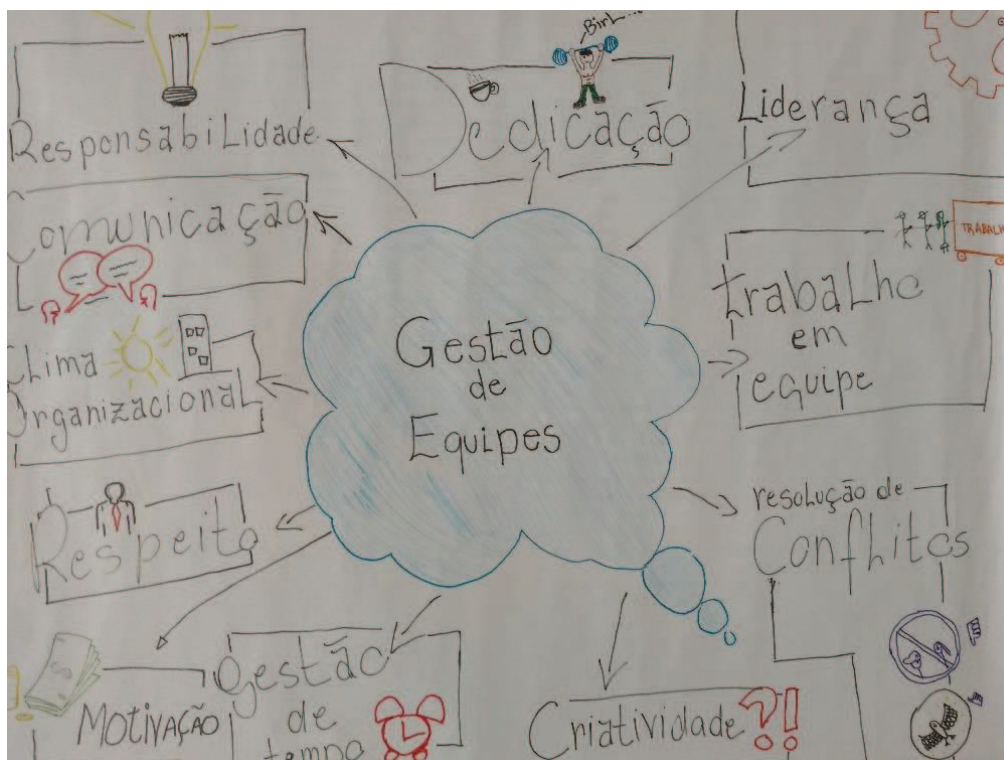 Birl...
Responsabilidade
Dedicação
Liderança
Comunicação
TRABALH
trabalho
em
equipe
Clima
Organizacional
Gestão
de
Equipes
Respeito
resolução de
Conflitos
Motivação
Gestão
de
tempo
Criatividade ?!